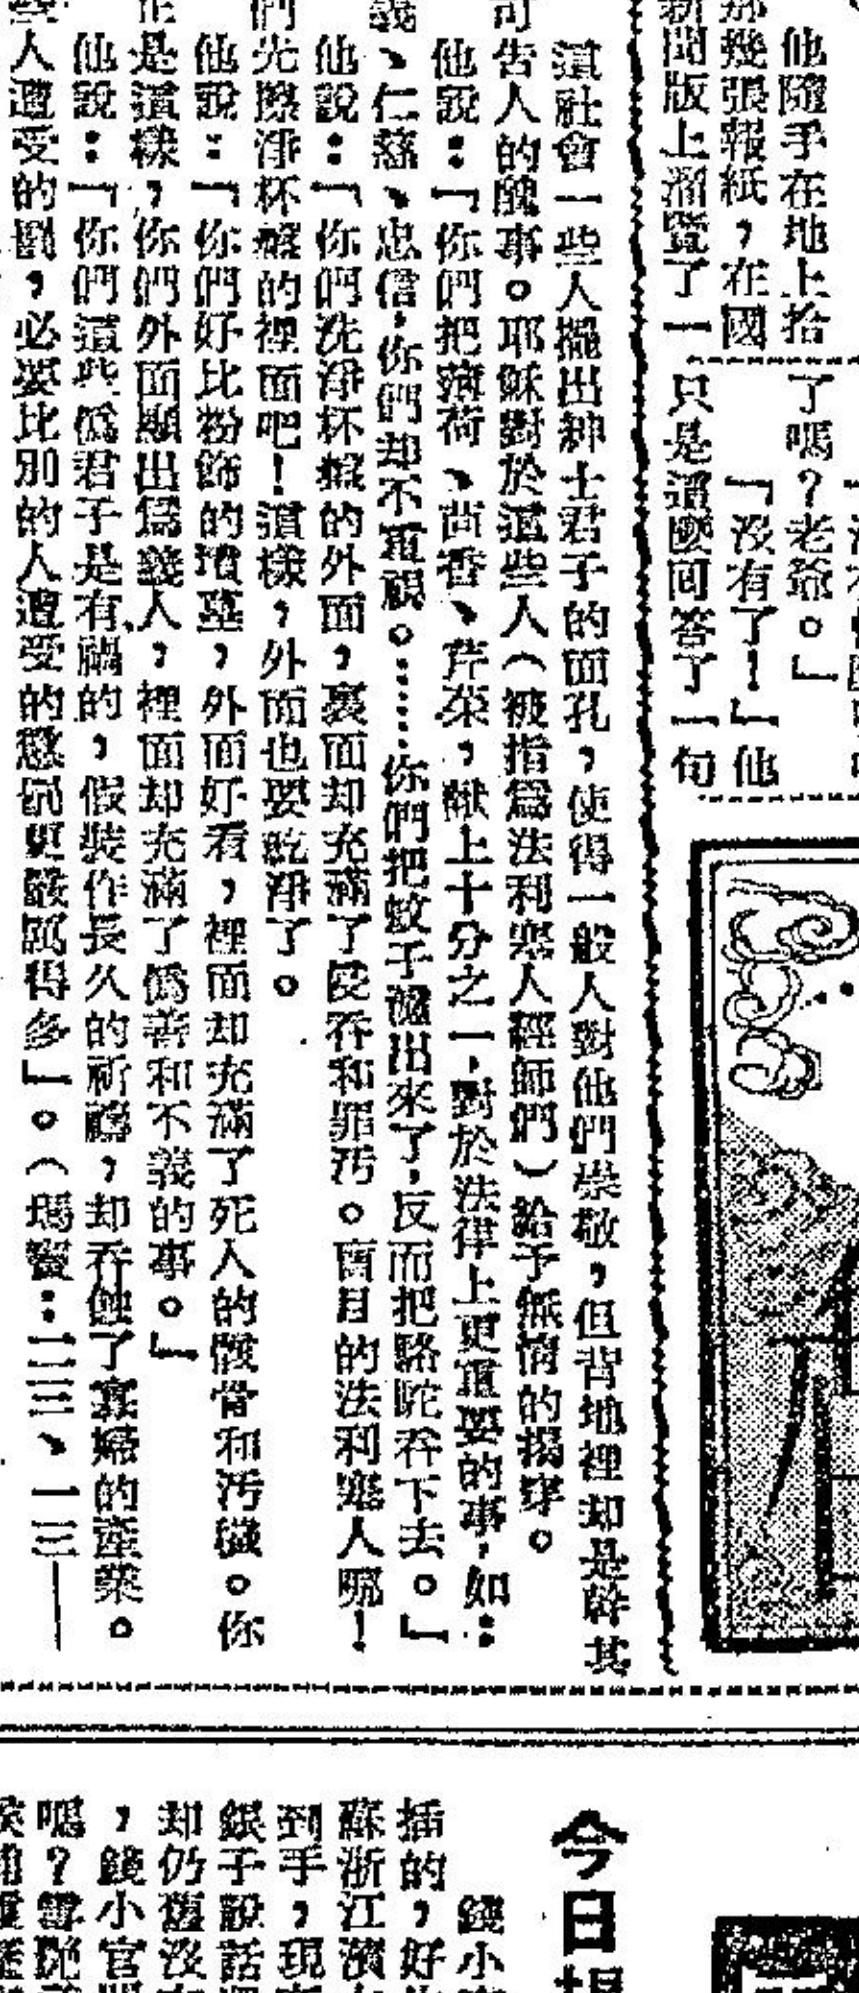 他隨手在地上拾
那幾張報紙，在國
新聞版上溜覽了一
了嗎？老爺。」
「沒有了！」他
只是這麼回答了一句
這社會一些人擺出紳士君子的面孔，使得一般人對他們崇敬，但背地裡却是幹其
可告人的醜事。耶穌對於這些人（被指爲法利塞人經師們）給予無情的揭穿。
他說：「你們把薄荷、茴香、芹菜，獻上十分之一，對於法律上更重要的事，如：
義、仁慈、忠信，你們却不重視。……你們把蚊子濾出來了，反而把駱駝吞下去。」
他說：「你們洗淨杯盤的外面，裏面却充滿了侵吞和罪汚。盲目的法利塞人哪！
們先擦淨杯盤的裡面吧！這樣，外面也要乾淨了。
他說：「你們好比粉飾的墳墓，外面好看，裡面却充滿了死人的骸骨和汚穢。你
正是這樣，你們外面顯出爲義人，裡面却充滿了僞善和不義的事。」
他說：「你們這些僞君子是有禍的，假裝作長久的祈禱，却吞蝕了寡婦的產業。
些人遭受的罰，必要比別的人遭受的懲罰更嚴厲得多」。（瑪竇：二三、一三—
今日
錢小
插的，好
蘇浙江濱
到手，現
銀子說話
却仍舊沒
，錢小官
嗎？